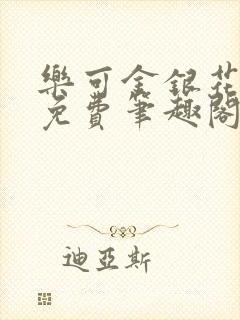 樂可金銀花
免費筆趣閣
迪亞斯